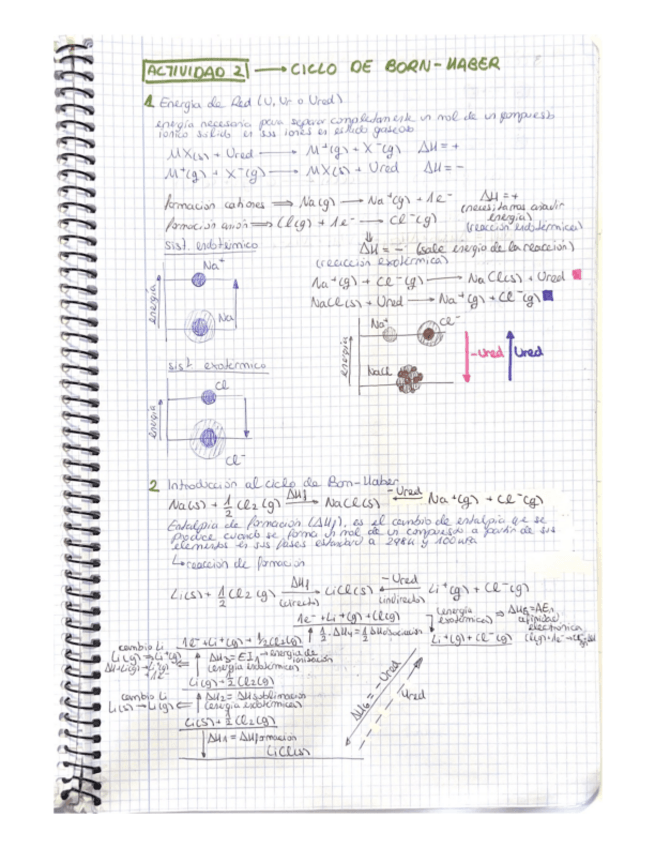 ACTIVIDAD 2 → CICLO DE BORN-HABER
1 Energía de Red (U, Ur o Ured)
energía necesaria para separar completamente un mol de un compuesto
iónico sólido en sus iones en estado gaseoso
MX(s) + Ured → M⁺(g) + X⁻(g) ΔH = +
M⁺(g) + X⁻(g) → MX(s) + Ured ΔH = -
formación cationes ⇒ Na(g) → Na⁺(g) + 1e⁻ ΔH = +
(necesitamos añadir
energía)
(reacción endotérmica)
formación anión ⇒ Cl(g) + 1e⁻ → Cl⁻(g)
⇓
ΔH = - (sale energía de la reacción)
(reacción exotérmica)
sist. endotérmico
Na⁺
energía
Na
Na⁺(g) + Cl⁻(g) → NaCl(s) + Ured
NaCl(s) + Ured → Na⁺(g) + Cl⁻(g)
Na⁺ Cl⁻
energía
NaCl
-Ured Ured
sist. exotérmico
Cl
energía
Cl⁻
2 Introducción al ciclo de Born-Haber
Na(s) + 1/2 Cl₂(g) ΔHf → NaCl(s) ← -Ured Na⁺(g) + Cl⁻(g)
Entalpía de formación (ΔHf), es el cambio de entalpía que se
produce cuando se forma un mol de un compuesto a partir de sus
elementos en sus fases estándar a 298K y 100kPa
↳ reacción de formación
Li(s) + 1/2 Cl₂(g) ΔHf → (directo) LiCl(s) ← -Ured (indirecto) Li⁺(g) + Cl⁻(g)
1e⁻ + Li⁺(g) + Cl(g)
(energía
exotérmica) ⇒ ΔH5 = AE,
afinidad
electrónica
↑ 1/2 · ΔH4 = 1/2 ΔHdisociación
Li⁺(g) + Cl⁻(g)
1e⁻ + Li⁺(g) + 1/2 Cl₂(g)
cambio Li
Li(g) → Li⁺(g)
+ 1e⁻
↑ ΔH3 = EI₁ → energía de
ionización
(energía endotérmica)
Li(g) + 1/2 Cl₂(g)
cambio Li
Li(s) → Li(g) ⇐ ↑ ΔH2 = ΔHsublimación
(energía endotérmica)
Li(s) + 1/2 Cl₂(g)
↓ ΔH1 = ΔHformación
LiCl(s)
ΔH6 = -Ured
Ured